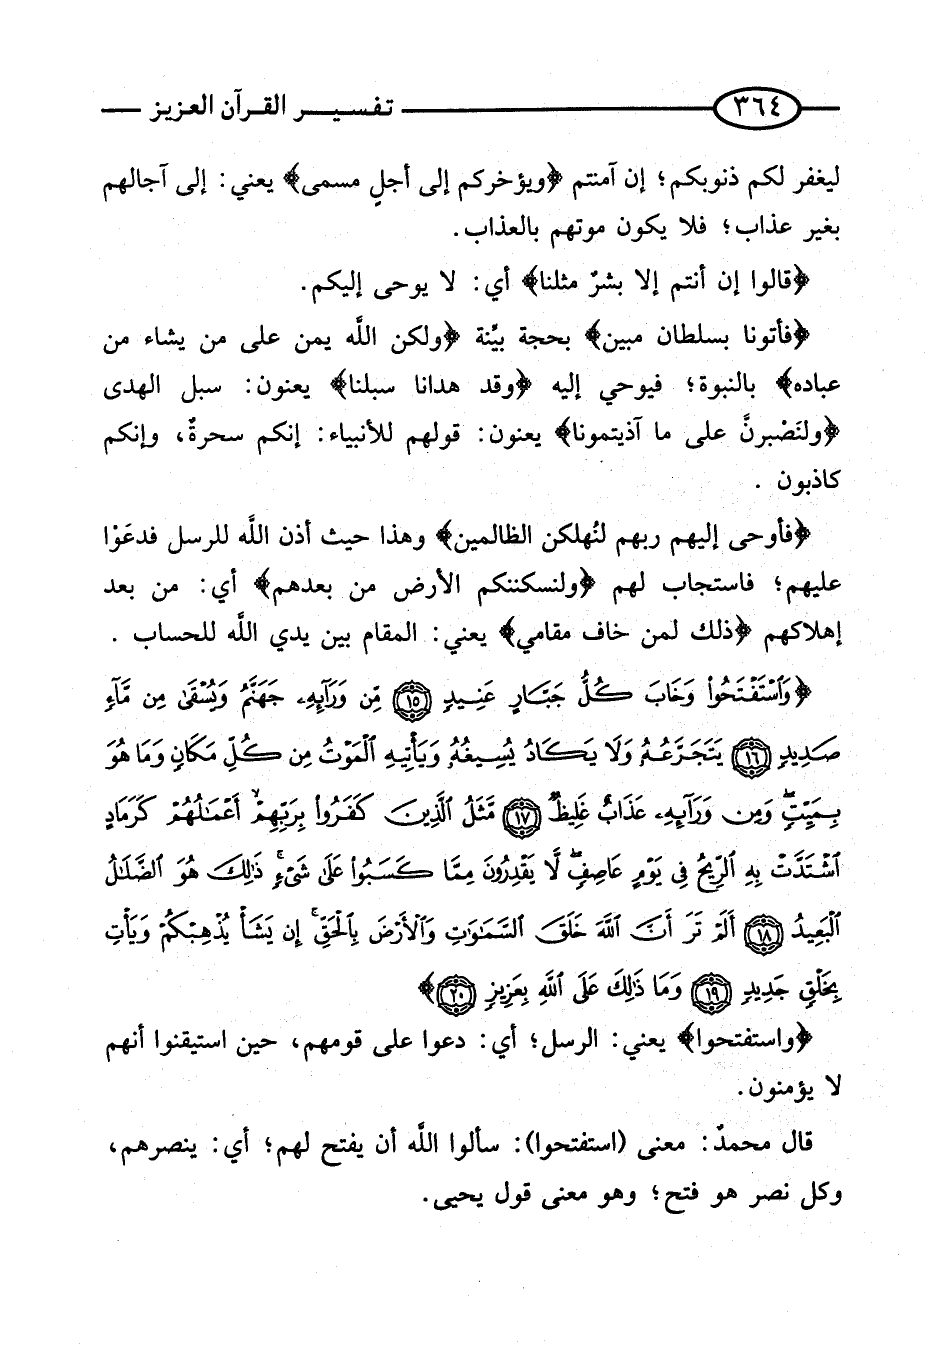 ٣٦٤ تفسير القرآن العزيز
ليغفر لكم ذنوبكم؛ إن آمنتم ﴿ويؤخركم إلى أجلٍ مسمى﴾ يعني: إلى آجالهم
بغير عذاب؛ فلا يكون موتهم بالعذاب.
﴿قالوا إن أنتم إلا بشرٌ مثلنا﴾ أي: لا يوحى إليكم.
﴿فأتونا بسلطان مبين﴾ بحجة بيِّنة ﴿ولكن اللَّه يمن على من يشاء من
عباده﴾ بالنبوة؛ فيوحي إليه ﴿وقد هدانا سبلنا﴾ يعنون: سبل الهدى
﴿ولنَصْبرنَّ على ما آذيتمونا﴾ يعنون: قولهم للأنبياء: إنكم سحرةٌ، وإنكم
كاذبون .
﴿فأوحى إليهم ربهم لنُهلكن الظالمين﴾ وهذا حيث أذن اللَّه للرسل فدعَوْا
عليهم؛ فاستجاب لهم ﴿ولنسكننكم الأرض من بعدهم﴾ أي: من بعد
إهلاكهم ﴿ذلك لمن خاف مقامي﴾ يعني: المقام بين يدي اللَّه للحساب .
﴿وَٱسْتَفْتَحُوا۟ وَخَابَ كُلُّ جَبَّارٍ عَنِيدٍ ١٥ مِّن وَرَآئِهِۦ جَهَنَّمُ وَيُسْقَىٰ مِن مَّآءٍ
صَدِيدٍ ١٦ يَتَجَرَّعُهُۥ وَلَا يَكَادُ يُسِيغُهُۥ وَيَأْتِيهِ ٱلْمَوْتُ مِن كُلِّ مَكَانٍ وَمَا هُوَ
بِمَيِّتٍ ۖ وَمِن وَرَآئِهِۦ عَذَابٌ غَلِيظٌ ١٧ مَّثَلُ ٱلَّذِينَ كَفَرُوا۟ بِرَبِّهِمْ ۖ أَعْمَـٰلُهُمْ كَرَمَادٍ
ٱشْتَدَّتْ بِهِ ٱلرِّيحُ فِى يَوْمٍ عَاصِفٍ ۖ لَّا يَقْدِرُونَ مِمَّا كَسَبُوا۟ عَلَىٰ شَىْءٍ ۚ ذَٰلِكَ هُوَ ٱلضَّلَـٰلُ
ٱلْبَعِيدُ ١٨ أَلَمْ تَرَ أَنَّ ٱللَّهَ خَلَقَ ٱلسَّمَـٰوَٰتِ وَٱلْأَرْضَ بِٱلْحَقِّ ۚ إِن يَشَأْ يُذْهِبْكُمْ وَيَأْتِ
بِخَلْقٍ جَدِيدٍ ١٩ وَمَا ذَٰلِكَ عَلَى ٱللَّهِ بِعَزِيزٍ ٢٠﴾
﴿واستفتحوا﴾ يعني: الرسل؛ أي: دعوا على قومهم، حين استيقنوا أنهم
لا يؤمنون.
قال محمدٌ: معنى (استفتحوا): سألوا اللَّه أن يفتح لهم؛ أي: ينصرهم،
وكل نصر هو فتح؛ وهو معنى قول يحيى.